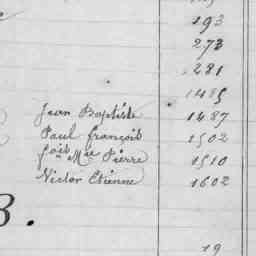 193
273
281
1485
Jean Baptiste 1487
Paul françois 1502
fois Mie Pierre 1510
Victor Etienne 1602
B.
19